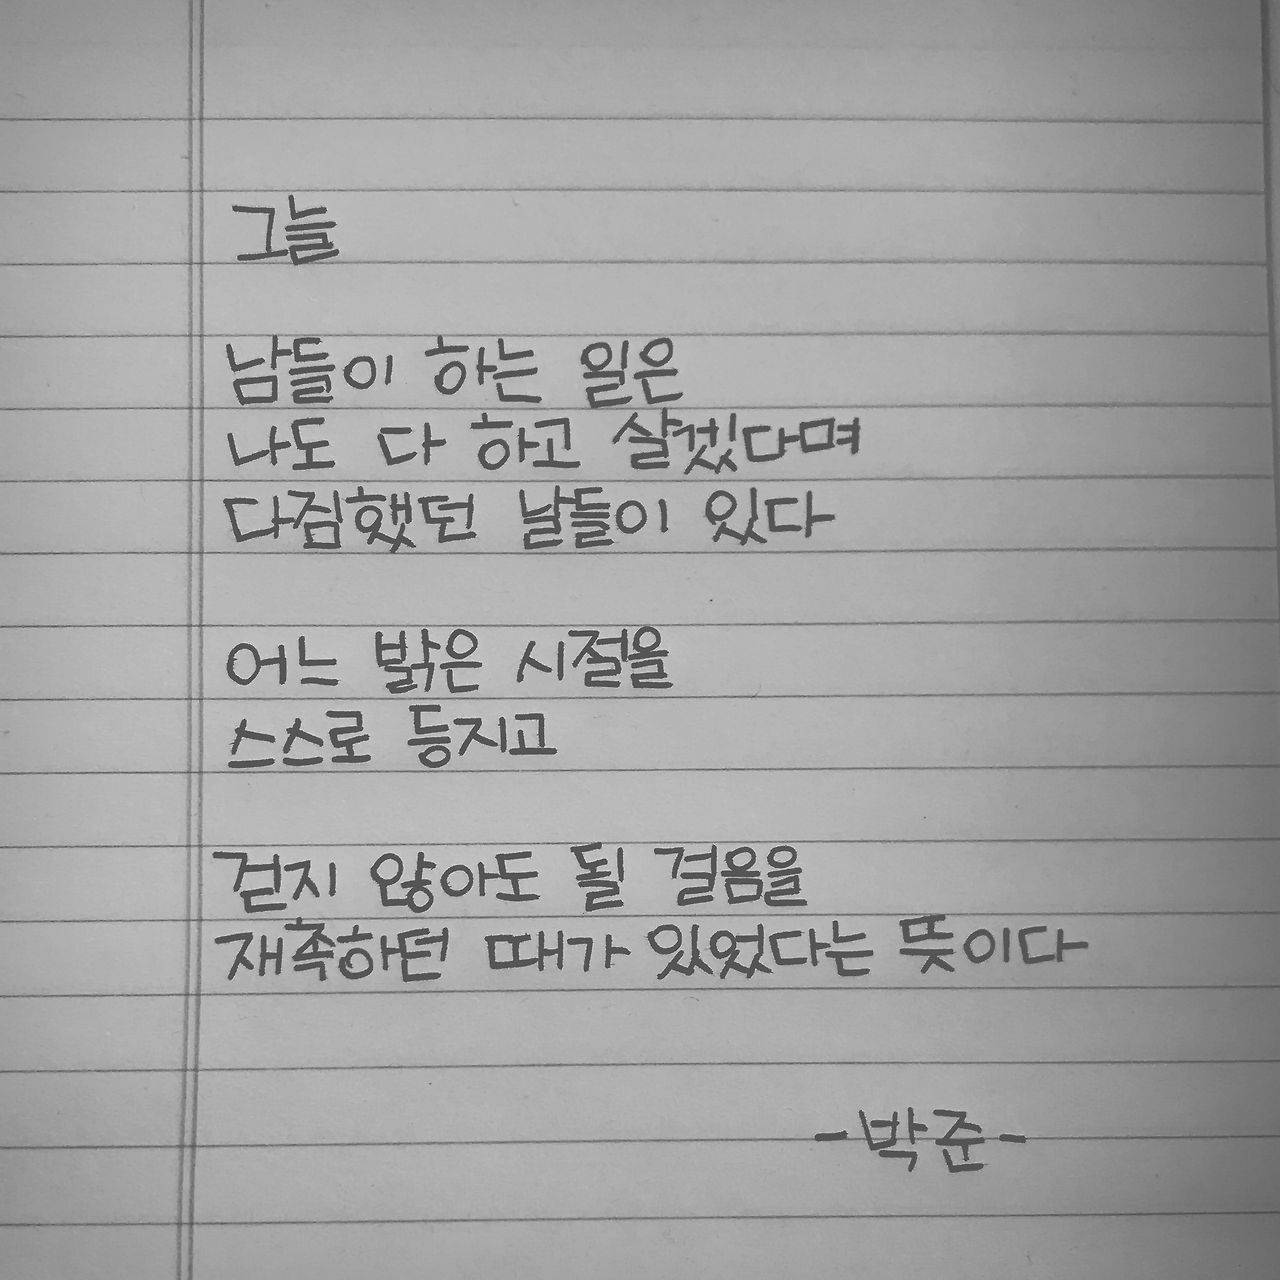 그늘
남들이 하는 일은
나도 다 하고 살겠다며
다짐했던 날들이 있다
어느 밝은 시절을
스스로 등지고
걷지 않아도 될 걸음을
재촉하던 때가 있었다는 뜻이다
-박준-